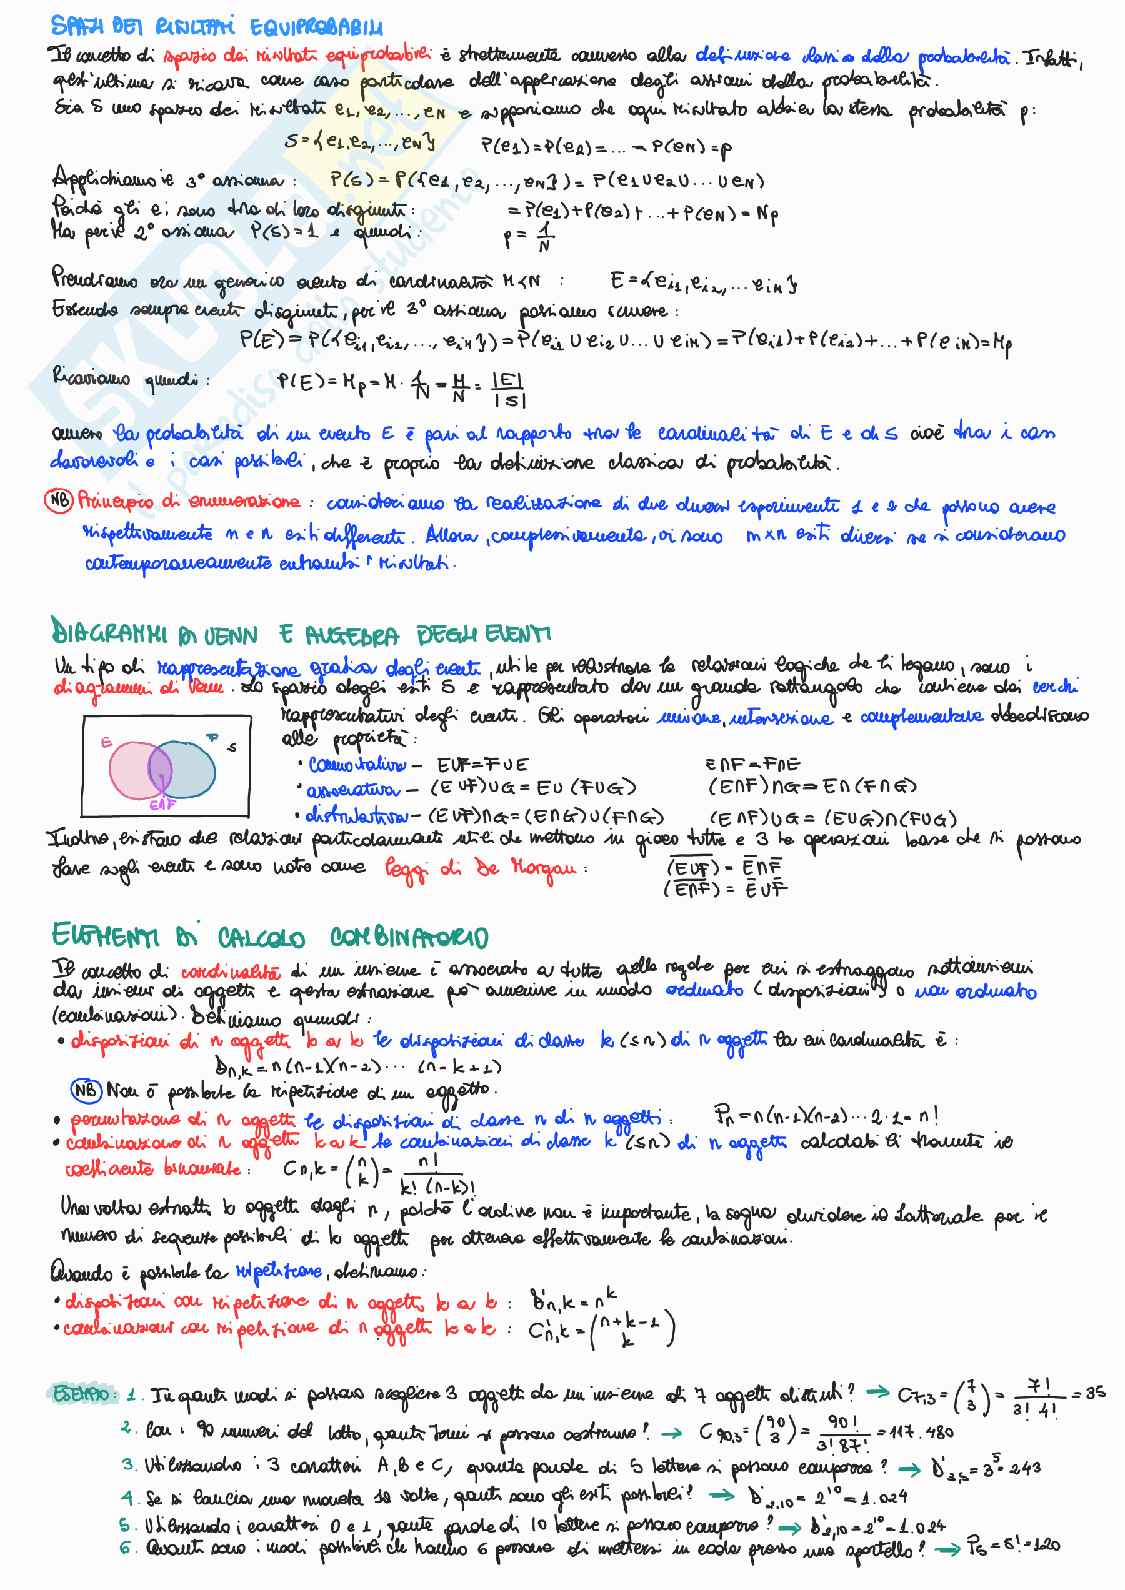 SPAZI DEI RISULTATI EQUIPROBABILI
Il concetto di spazio dei risultati equiprobabili è strettamente connesso alla definizione classica della probabilità. Infatti,
quest'ultima si ricava come caso particolare dell'applicazione degli assiomi della probabilità.
Sia S uno spazio dei risultati e1, e2, ..., eN e supponiamo che ogni risultato abbia la stessa probabilità p:
S = {e1, e2, ..., eN} P(e1) = P(e2) = ... = P(eN) = p
Applichiamo il 3° assioma: P(S) = P({e1, e2, ..., eN}) = P(e1 ∪ e2 ∪ ... ∪ eN)
Poiché gli ei sono tra di loro disgiunti: = P(e1) + P(e2) + ... + P(eN) = Np
Ma per il 2° assioma P(S) = 1 e quindi: p = 1/N
Prendiamo ora un generico evento di cardinalità M<N : E = {ei1, ei2, ... eiM}
Essendo sempre eventi disgiunti, per il 3° assioma possiamo scrivere:
P(E) = P({ei1, ei2, ..., eiM}) = P(ei1 ∪ ei2 ∪ ... ∪ eiM) = P(ei1) + P(ei2) + ... + P(eiM) = Mp
Ricaviamo quindi: P(E) = Mp = M · 1/N = M/N = |E|/|S|
ovvero la probabilità di un evento E è pari al rapporto tra le cardinalità di E e di S cioè tra i casi
favorevoli e i casi possibili, che è proprio la definizione classica di probabilità.
NB Principio di enumerazione: consideriamo la realizzazione di due diversi esperimenti 1 e 2 che possono avere
rispettivamente m e n esiti differenti. Allora, complessivamente, vi sono m×n esiti diversi se si considerano
contemporaneamente entrambi i risultati.
DIAGRAMMI DI VENN E ALGEBRA DEGLI EVENTI
Un tipo di rappresentazione grafica degli eventi, utile per illustrare le relazioni logiche che li legano, sono i
diagrammi di Venn. Lo spazio degli esiti S è rappresentato da un grande rettangolo che contiene dei cerchi
rappresentativi degli eventi. Gli operatori unione, intersezione e complementare obbediscono
alle proprietà:
E F S
E∩F
• commutativa - E∪F = F∪E E∩F = F∩E
• associativa - (E∪F)∪G = E∪(F∪G) (E∩F)∩G = E∩(F∩G)
• distributiva - (E∪F)∩G = (E∩G)∪(F∩G) (E∩F)∪G = (E∪G)∩(F∪G)
Inoltre, esistono due relazioni particolarmente utili che mettono in gioco tutte e 3 le operazioni base che si possono
fare sugli eventi e sono note come leggi di De Morgan: (E̅∪̅F̅) = E̅∩F̅
(E̅∩̅F̅) = E̅∪F̅
ELEMENTI DI CALCOLO COMBINATORIO
Il concetto di cardinalità di un insieme è associato a tutte quelle regole per cui si estraggono sottoinsiemi
da insiemi di oggetti e questa estrazione può avvenire in modo ordinato (disposizioni) o non ordinato
(combinazioni). Definiamo quindi:
• disposizioni di n oggetti k a k le disposizioni di classe k (≤n) di n oggetti la cui cardinalità è:
Dn,k = n(n-1)(n-2) ... (n-k+1)
NB Non è possibile la ripetizione di un oggetto.
• permutazione di n oggetti le disposizioni di classe n di n oggetti: Pn = n(n-1)(n-2) ... 2·1 = n!
• combinazione di n oggetti k a k le combinazioni di classe k (≤n) di n oggetti calcolabili tramite il
coefficiente binomiale: Cn,k = (n k) = n!/(k!(n-k)!)
Una volta estratti k oggetti dagli n, poiché l'ordine non è importante, bisogna dividere il fattoriale per il
numero di sequenze possibili di k oggetti per ottenere effettivamente le combinazioni.
Quando è possibile la ripetizione, definiamo:
• disposizioni con ripetizione di n oggetti k a k: D'n,k = n^k
• combinazioni con ripetizione di n oggetti k a k: C'n,k = (n+k-1 k)
ESEMPIO: 1. In quanti modi si possono scegliere 3 oggetti da un insieme di 7 oggetti distinti? → C7,3 = (7 3) = 7!/(3! 4!) = 35
2. Con i 90 numeri del lotto, quanti terni si possono costruire? → C90,3 = (90 3) = 90!/(3! 87!) = 117.480
3. Utilizzando i 3 caratteri A, B e C, quante parole di 5 lettere si possono comporre? → D'3,5 = 3^5 = 243
4. Se si lancia una moneta 10 volte, quanti sono gli esiti possibili? → D'2,10 = 2^10 = 1.024
5. Utilizzando i caratteri 0 e 1, quante parole di 10 lettere si possono comporre? → D'2,10 = 2^10 = 1.024
6. Quanti sono i modi possibili che hanno 6 persone di mettersi in coda presso uno sportello? → P5 = 5! = 120
SKUOLA.net
il paradiso dello studente